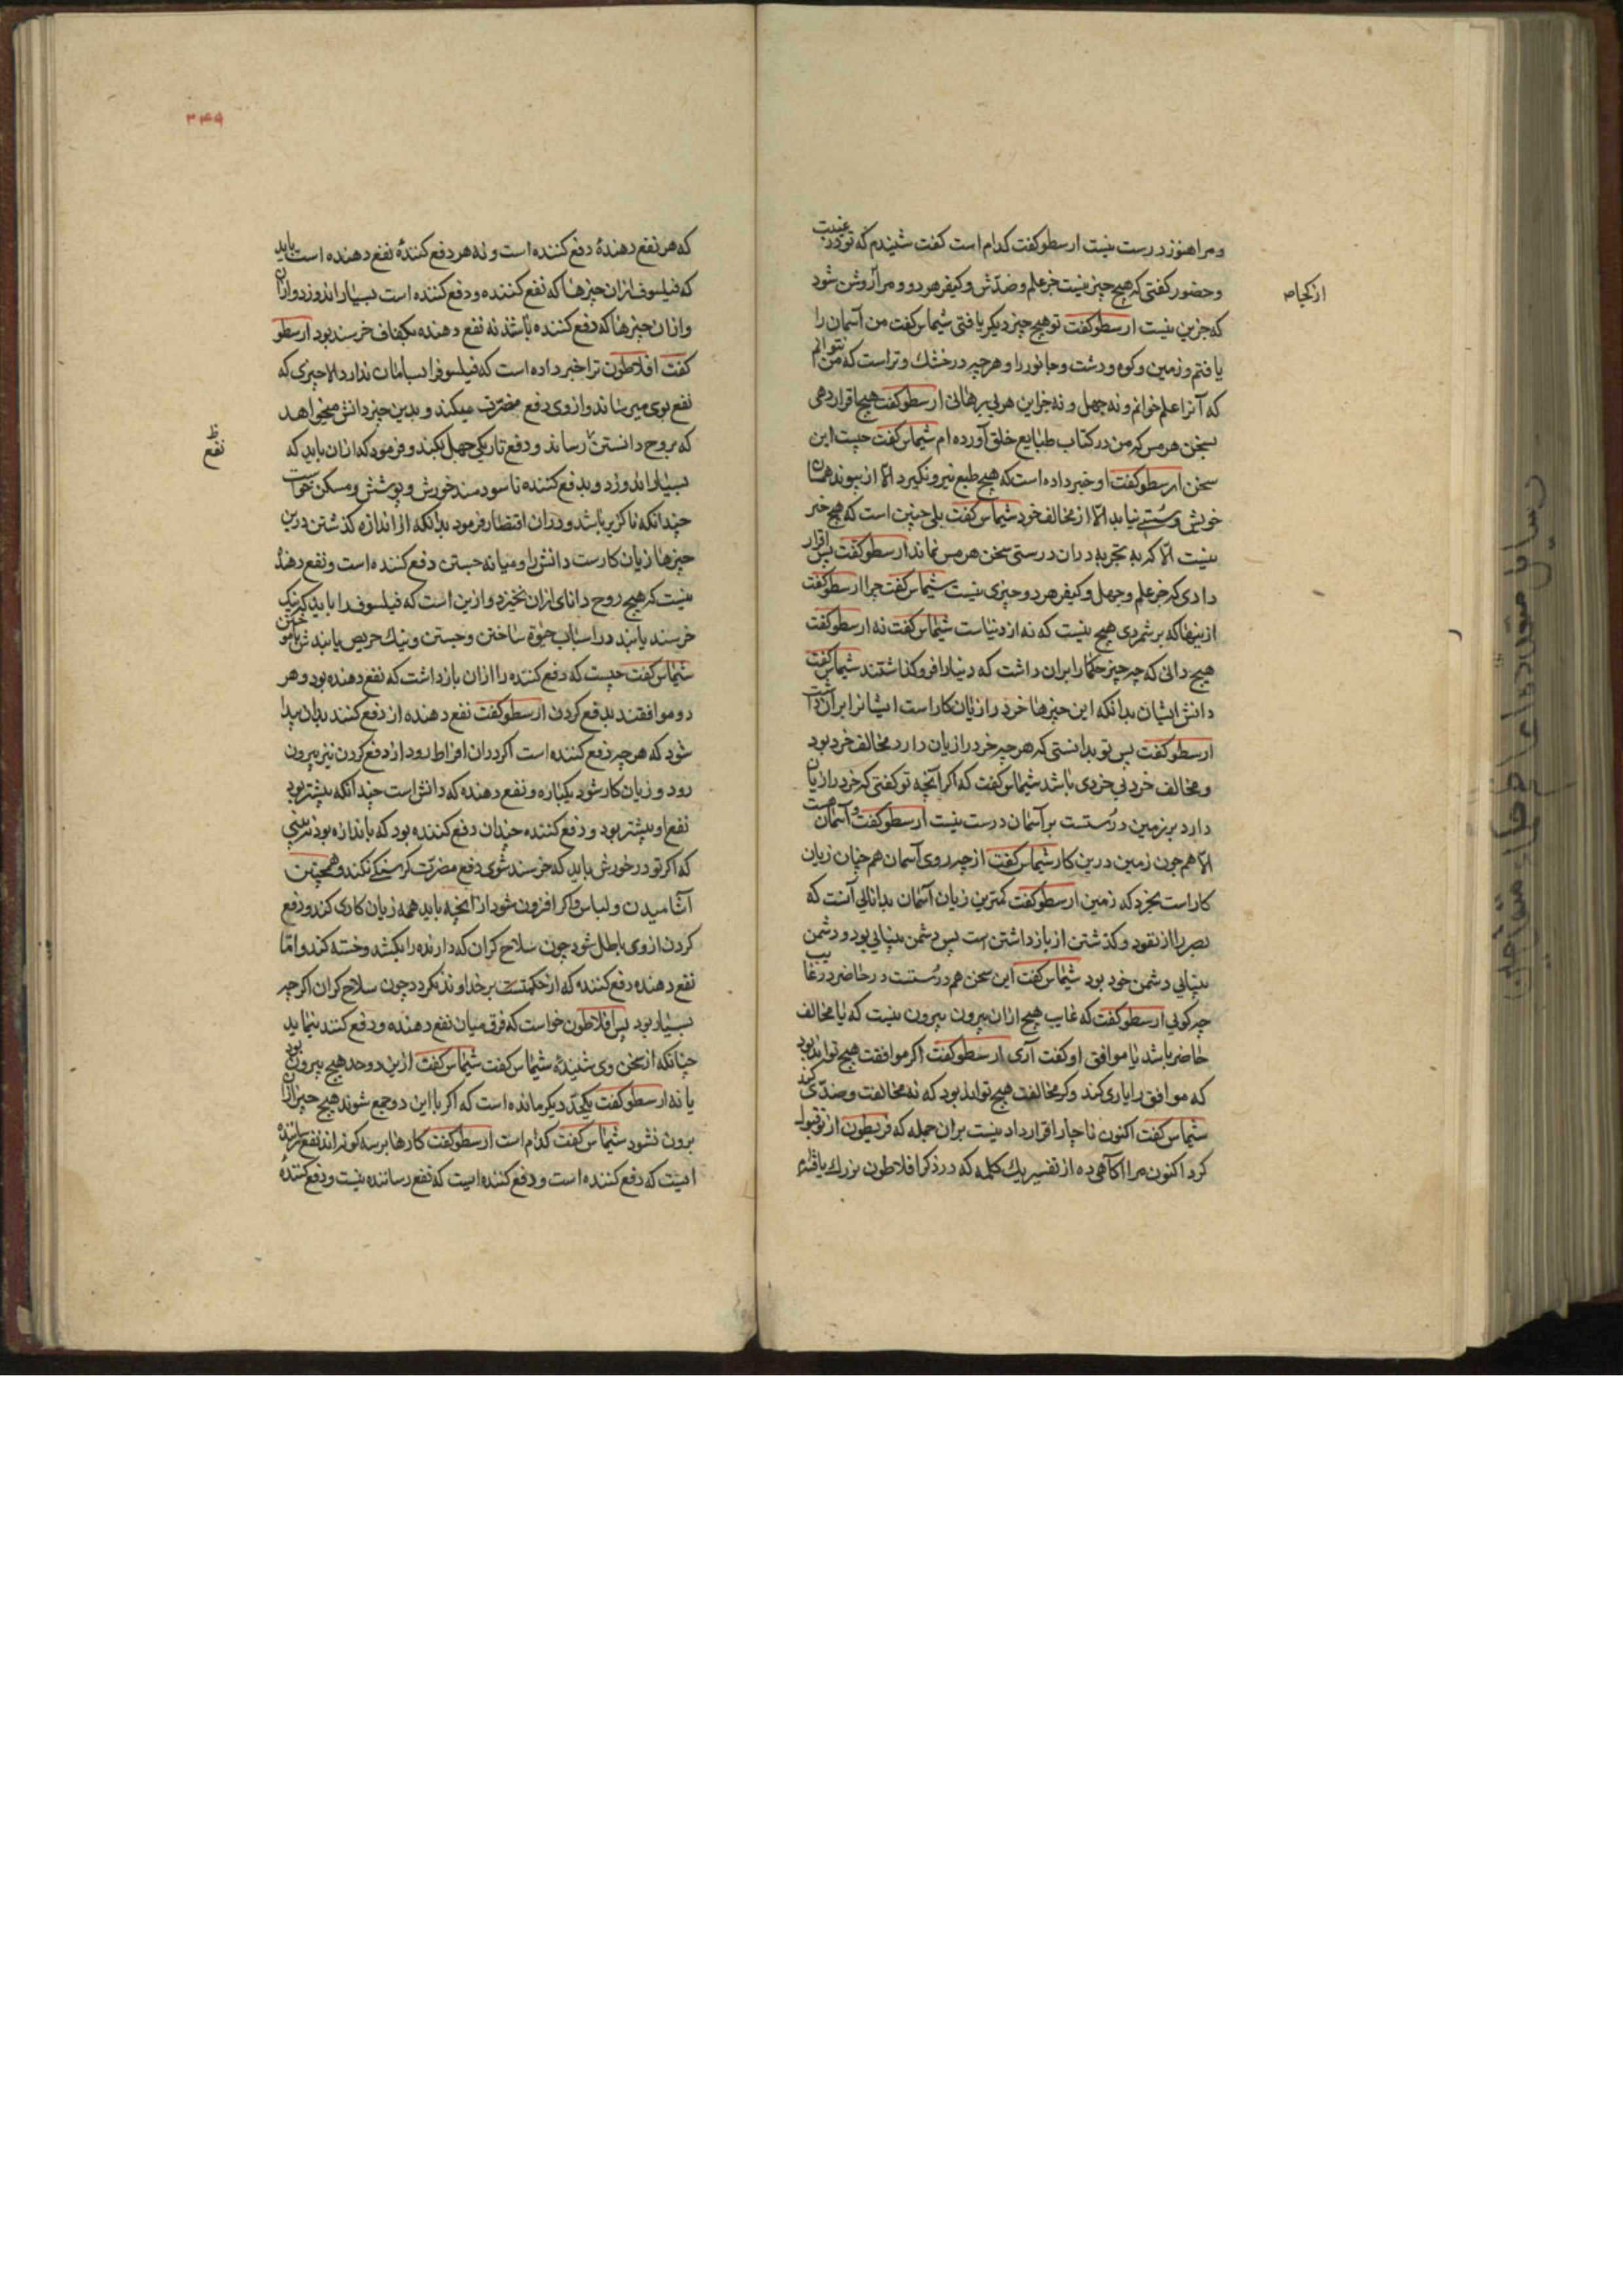 ومرا هنوز درست نیست ارسطو گفت کدام است گفت شنیدم که تو در غیبت
وحضور گفتی که هیچ چیز نیست جز علم و ضدّش و کیفر هر دو و مرا روشن شود
از کجا
که جزین نیست ارسطو گفت تو هیچ چیز دیگر یافتی شیماس گفت من آسمان را
یافتم و زمین و کوه و دشت و جانور را و هر چه در خشک و تر است که من نتوانم
که آنرا علم خوانم و نه جهل و نه جز این هر بی برهانی ارسطو گفت هیچ اقرار دهی
بسخن هرمس که من در کتاب طبایع خلق آورده ام شیماس گفت چیست این
سخن ارسطو گفت او خبر داده است که هیچ طبع نیرو نگیرد الّا از پیوند همسان
خویش و سستی نیابد الّا از مخالف خود شیماس گفت بلی چنین است که هیچ خبر
نیست الّا که به تجربه دران درستی سخن هرمس نماند ارسطو گفت پس اقرار
دادی که جز علم و جهل و کیفر هر دو چیزی نیست شیماس گفت چرا ارسطو گفت
ازینها که بر شمردی هیچ نیست که نه از دنیاست شیماس گفت نه ارسطو گفت
هیچ دانی که چه چیز حکما را بران داشت که دنیا را فرو گذاشتند شیماس گفت
دانش ایشان بدانکه این چیزها خرد را زیان کار است ایشانرا بران داشت
ارسطو گفت پس تو بدانستی که هر چه خرد را زیان دارد مخالف خرد بود
و مخالف خرد بی خردی باشد شیماس گفت که اگر آنچه تو گفتی که خرد را زیان
دارد بر زمین درستست بر آسمان درست نیست ارسطو گفت و آسمان نیست
الّا هم چون زمین درین کار شیماس گفت از چه روی آسمان هم چنان زیان
کار است بخرد که زمین ارسطو گفت کمترین زیان آسمان بدانائی آنست که
بصر را از نفوذ و گذشتن از باز داشتن است پس دشمن بینایی بود و دشمن
بینایی دشمن خود بود شیماس گفت این سخن هم درستست در حاضر در غایب
چه گویی ارسطو گفت که غایب هیچ ازان بیرون نیست که یا مخالف
حاضر باشد یا موافق او گفت آری ارسطو گفت اگر موافقت هیچ تواند بود
که موافق را یاری کند و گر مخالفت هیچ تواند بود که نه مخالفت و ضدّی کند
شیماس گفت اکنون ناچار اقرار دادنیست بران جمله که قریطون از تو قبول
کرد اکنون مرا آگاهی ده از تفسیر یک کلمه که در ذکر افلاطون بزرک یافته‌ام
۳۴۹
که هر نفع دهندۀ دفع کننده است و نه هر دفع کنندۀ نفع دهنده است باید
که فیلسوف ازان چیزها که نفع کننده و دفع کننده است بسیار اندوزد و ازان
وازان چیزها که دفع کننده باشد نه نفع دهنده بکفاف خرسند بود ارسطو
گفت افلاطون ترا خبر داده است که فیلسوفرا بسامان ندارد الّا چیزی که
نفع بوی میرساند و ازوی دفع مضرّت میکند و بدین چیز دانش میخواهد
که بروح دانستن رساند و دفع تاریکی جهل بکند و فرمود که ازان باید که
ظ نفع
بسیار اندوزد و بدفع کننده ناسودمند خورش و پوشش و مسکن خواست
چندانکه ناگزیر باشد و دران اقتصار فرمود بدانکه از اندازه گذشتن درین
چیزها زیان کارست دانش را و میانه جستن دفع کننده است و نفع دهندۀ
نیست که هیچ روح دانای ازان نخیزد و ازین است که فیلسوفرا باید که نیک
خرسند یابند در اسباب حیوة ساختن و جستن و نیک حریص یابند بآموختن
شیماس گفت چیست که دفع کننده را ازان باز داشت که نفع دهنده بود و هر
دو موافقند بدفع کردن ارسطو گفت نفع دهنده از دفع کننده بدان پیدا
شود که هر چه دفع کننده است اگر دران افراط رود از دفع کردن نیز بیرون
رود و زیان کار شود یکباره و نفع دهنده که دانش است چندانکه بیشتر بود
نفع او بیشتر بود و دفع کننده چندان دفع کننده بود که باندازه بود نبینی
که اگر تو در خورش باید که خرسند شوی دفع مضرّت گرسنگی نکند و همچنین
آشامیدن و لباس و اگر افزون شود از آنچه باید همه زیان کاری کند و دفع
کردن ازوی باطل شود چون سلاح گران که دارنده را بکشد و خسته کند و امّا
نفع دهنده دفع کننده که از حکمتست بر خداوند نگردد چون سلاح گران اگر چه
بسیار بود پس افلاطون خواست که فرق میان نفع دهنده و دفع کننده بنماید
چنانکه از سخن وی شنیدۀ شیماس گفت شیماس گفت ازین دو حد هیچ بیرون بود
یا نه ارسطو گفت یک حدّ دیگر مانده است که اگر با این دو جمع شوند هیچ چیز ازان
برون نشود شیماس گفت کدام است ارسطو گفت کارها بر سه گونه اند نفع رسانندۀ
ایست که دفع کننده است و دفع کننده ایست که نفع رساننده نیست و دفع کنندۀ